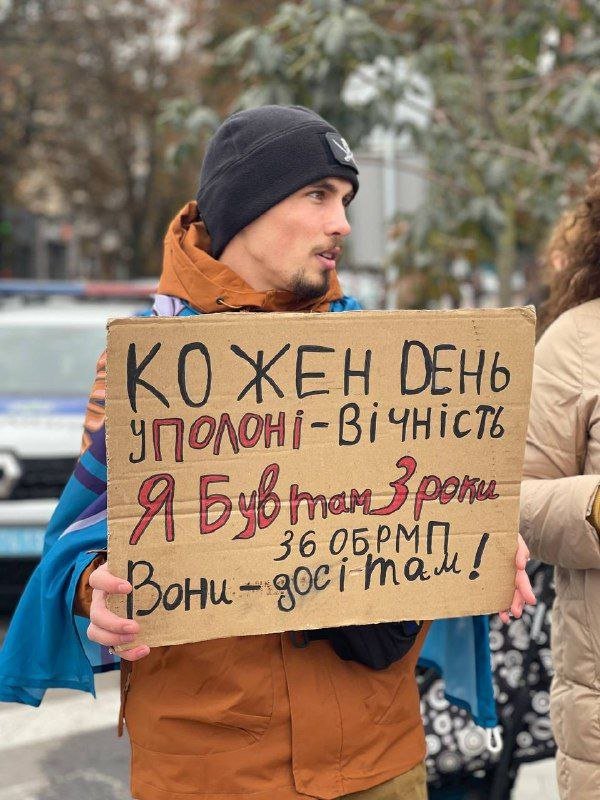 КОЖЕН DЕНЬ
у ПОЛОНі-Вічність
Я Був там 3 роки
36 ОБРМП
Вони - досі там!